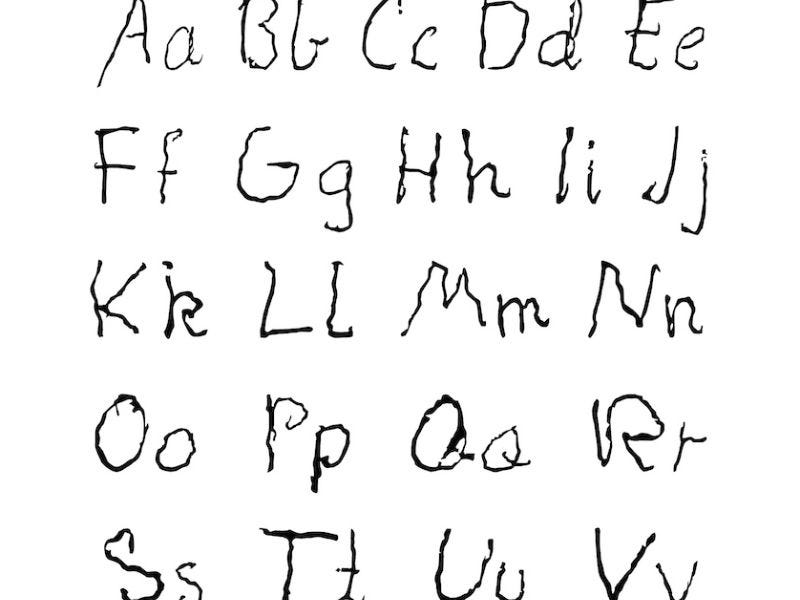 Aa Bb Cc Dd Ee
Ff Gg Hh Ii Jj
Kk Ll Mm Nn
Oo Pp Qq Rr
Ss Tt Uu Vv